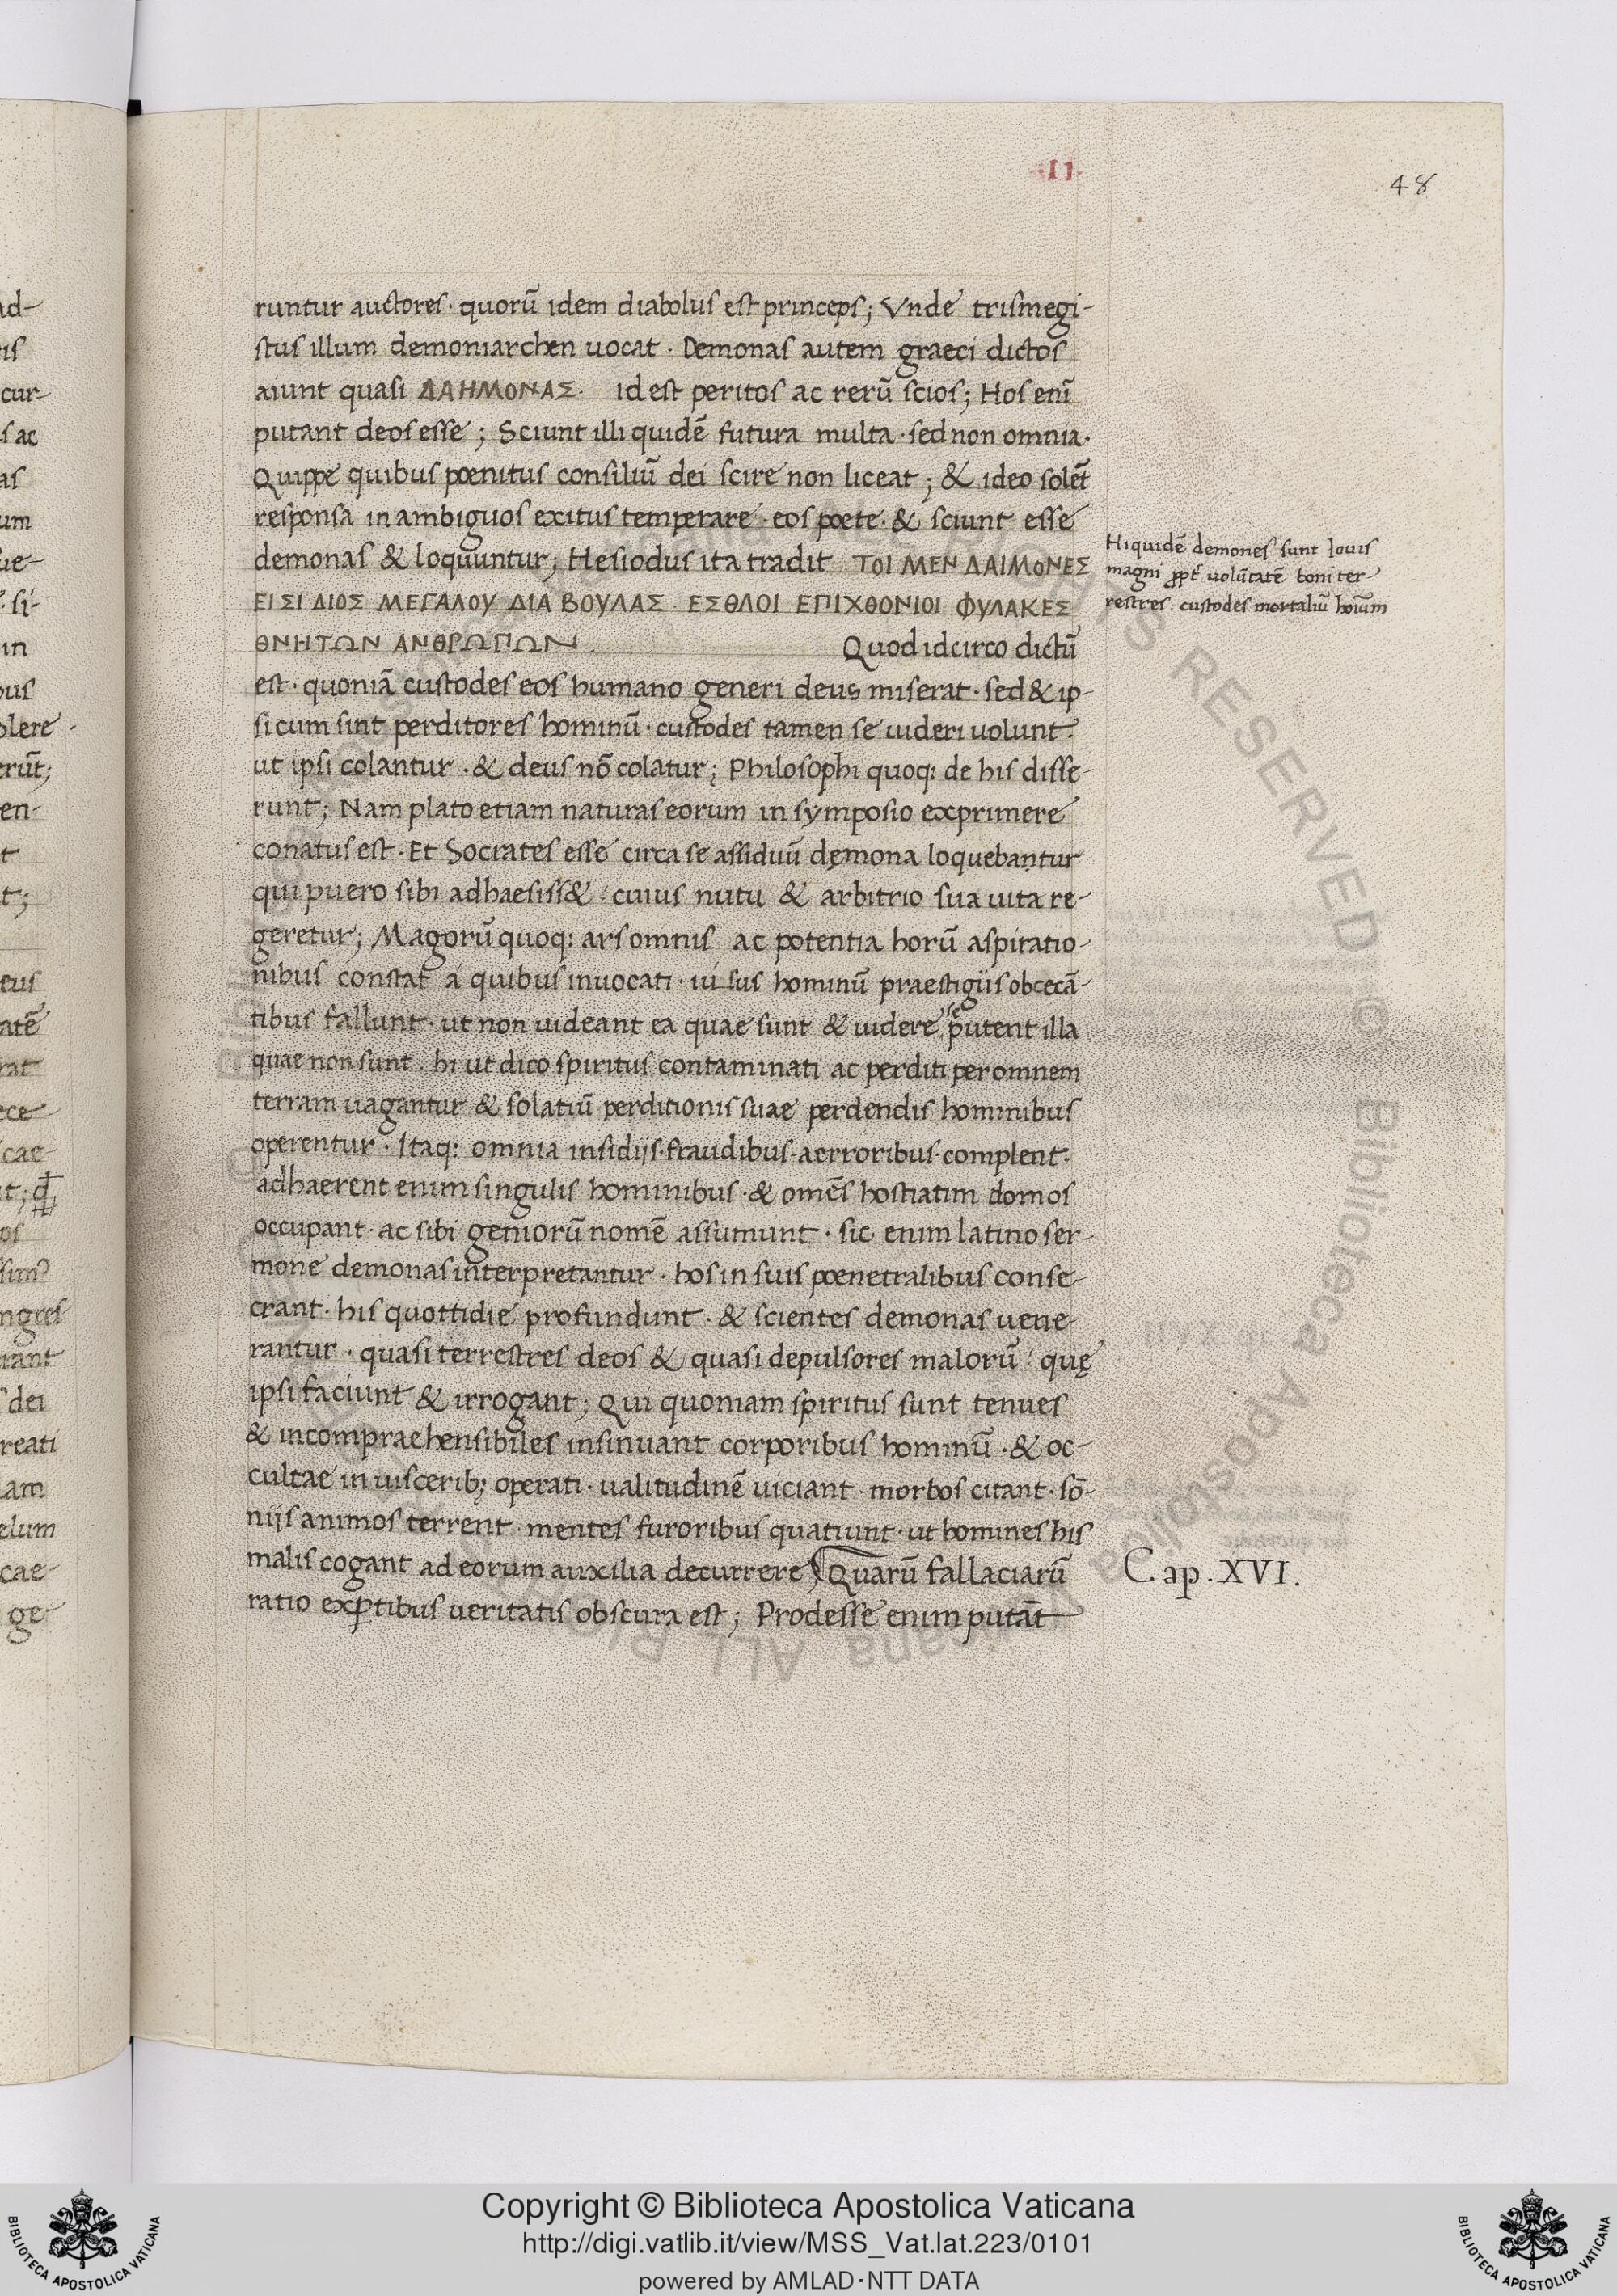 ·II·
48
runtur auctores · quorū idem diabolus est princeps; Vnde trismegi-
stus illum demoniarchen uocat · Demonas autem graeci dictos
aiunt quasi ΔΑΗΜΟΝΑΣ · id est peritos ac rerū scios; Hos enī
putant deos esse; Sciunt illi quidē futura multa · sed non omnia ·
Quippe quibus poenitus consiliū dei scire non liceat; & ideo solēt
responsa in ambiguos exitus temperare · eos poete · & sciunt esse
demonas & loquuntur; Hesiodus ita tradit ΤΟΙ ΜΕΝ ΔΑΙΜΟΝΕΣ
ΕΙΣΙ ΔΙΟΣ ΜΕΓΑΛΟΥ ΔΙΑ ΒΟΥΛΑΣ ΕΣΘΛΟΙ ΕΠΙΧΘΟΝΙΟΙ ΦΥΛΑΚΕΣ
ΘΝΗΤΩΝ ΑΝΘΡΩΠΩΝ · Quod idcirco dictū
est · quoniā custodes eos humano generi deus miserat · sed & ip-
si cum sint perditores hominū · custodes tamen se uideri uolunt ·
ut ipsi colantur · & deus nō colatur; Philosophi quoq: de his disse-
runt; Nam plato etiam naturas eorum in symposio exprimere
conatus est · Et Socrates esse circa se assiduū dęmona loquebantur
qui puero sibi adhaesiss& · cuius nutu & arbitrio sua uita re-
geretur; Magorū quoq: ars omnis ac potentia horū aspiratio-
nibus constat a quibus inuocati · uisus hominū praestigiis obcecā-
tibus fallunt · ut non uideant ea quae sunt & uidere se putent illa
quae non sunt · hi ut dico spiritus contaminati ac perditi per omnem
terram uagantur & solatiū perditionis suae perdendis hominibus
operentur · Itaq: omnia insidijs · fraudibus · aerroribus · complent ·
adhaerent enim singulis hominibus · & omēs hostiatim domos
occupant · ac sibi geniorū nomē assumunt · sic enim latino ser-
mone demonas interpretantur · hos in suis poenetralibus conse-
crant · his quottidie profundunt · & scientes demonas uene-
rantur · quasi terrestres deos & quasi depulsores malorū · quę
ipsi faciunt & irrogant; Qui quoniam spiritus sunt tenues
& incompraehensibiles insinuant corporibus hominū · & oc-
cultae in uiscerib; operati · ualitudinē uiciant · morbos citant · sō-
nijs animos terrent · mentes furoribus quatiunt · ut homines his
malis cogant ad eorum auxilia decurrere; Quarū fallaciarū
ratio exptibus ueritatis obscura est; Prodesse enim putāt
Hi quidē demones sunt Iouis
magni ppt' volūtatē boni ter-
restres custodes mortaliū hoīum
Cap. XVI.
Copyright © Biblioteca Apostolica Vaticana
http://digi.vatlib.it/view/MSS_Vat.lat.223/0101
powered by AMLAD·NTT DATA